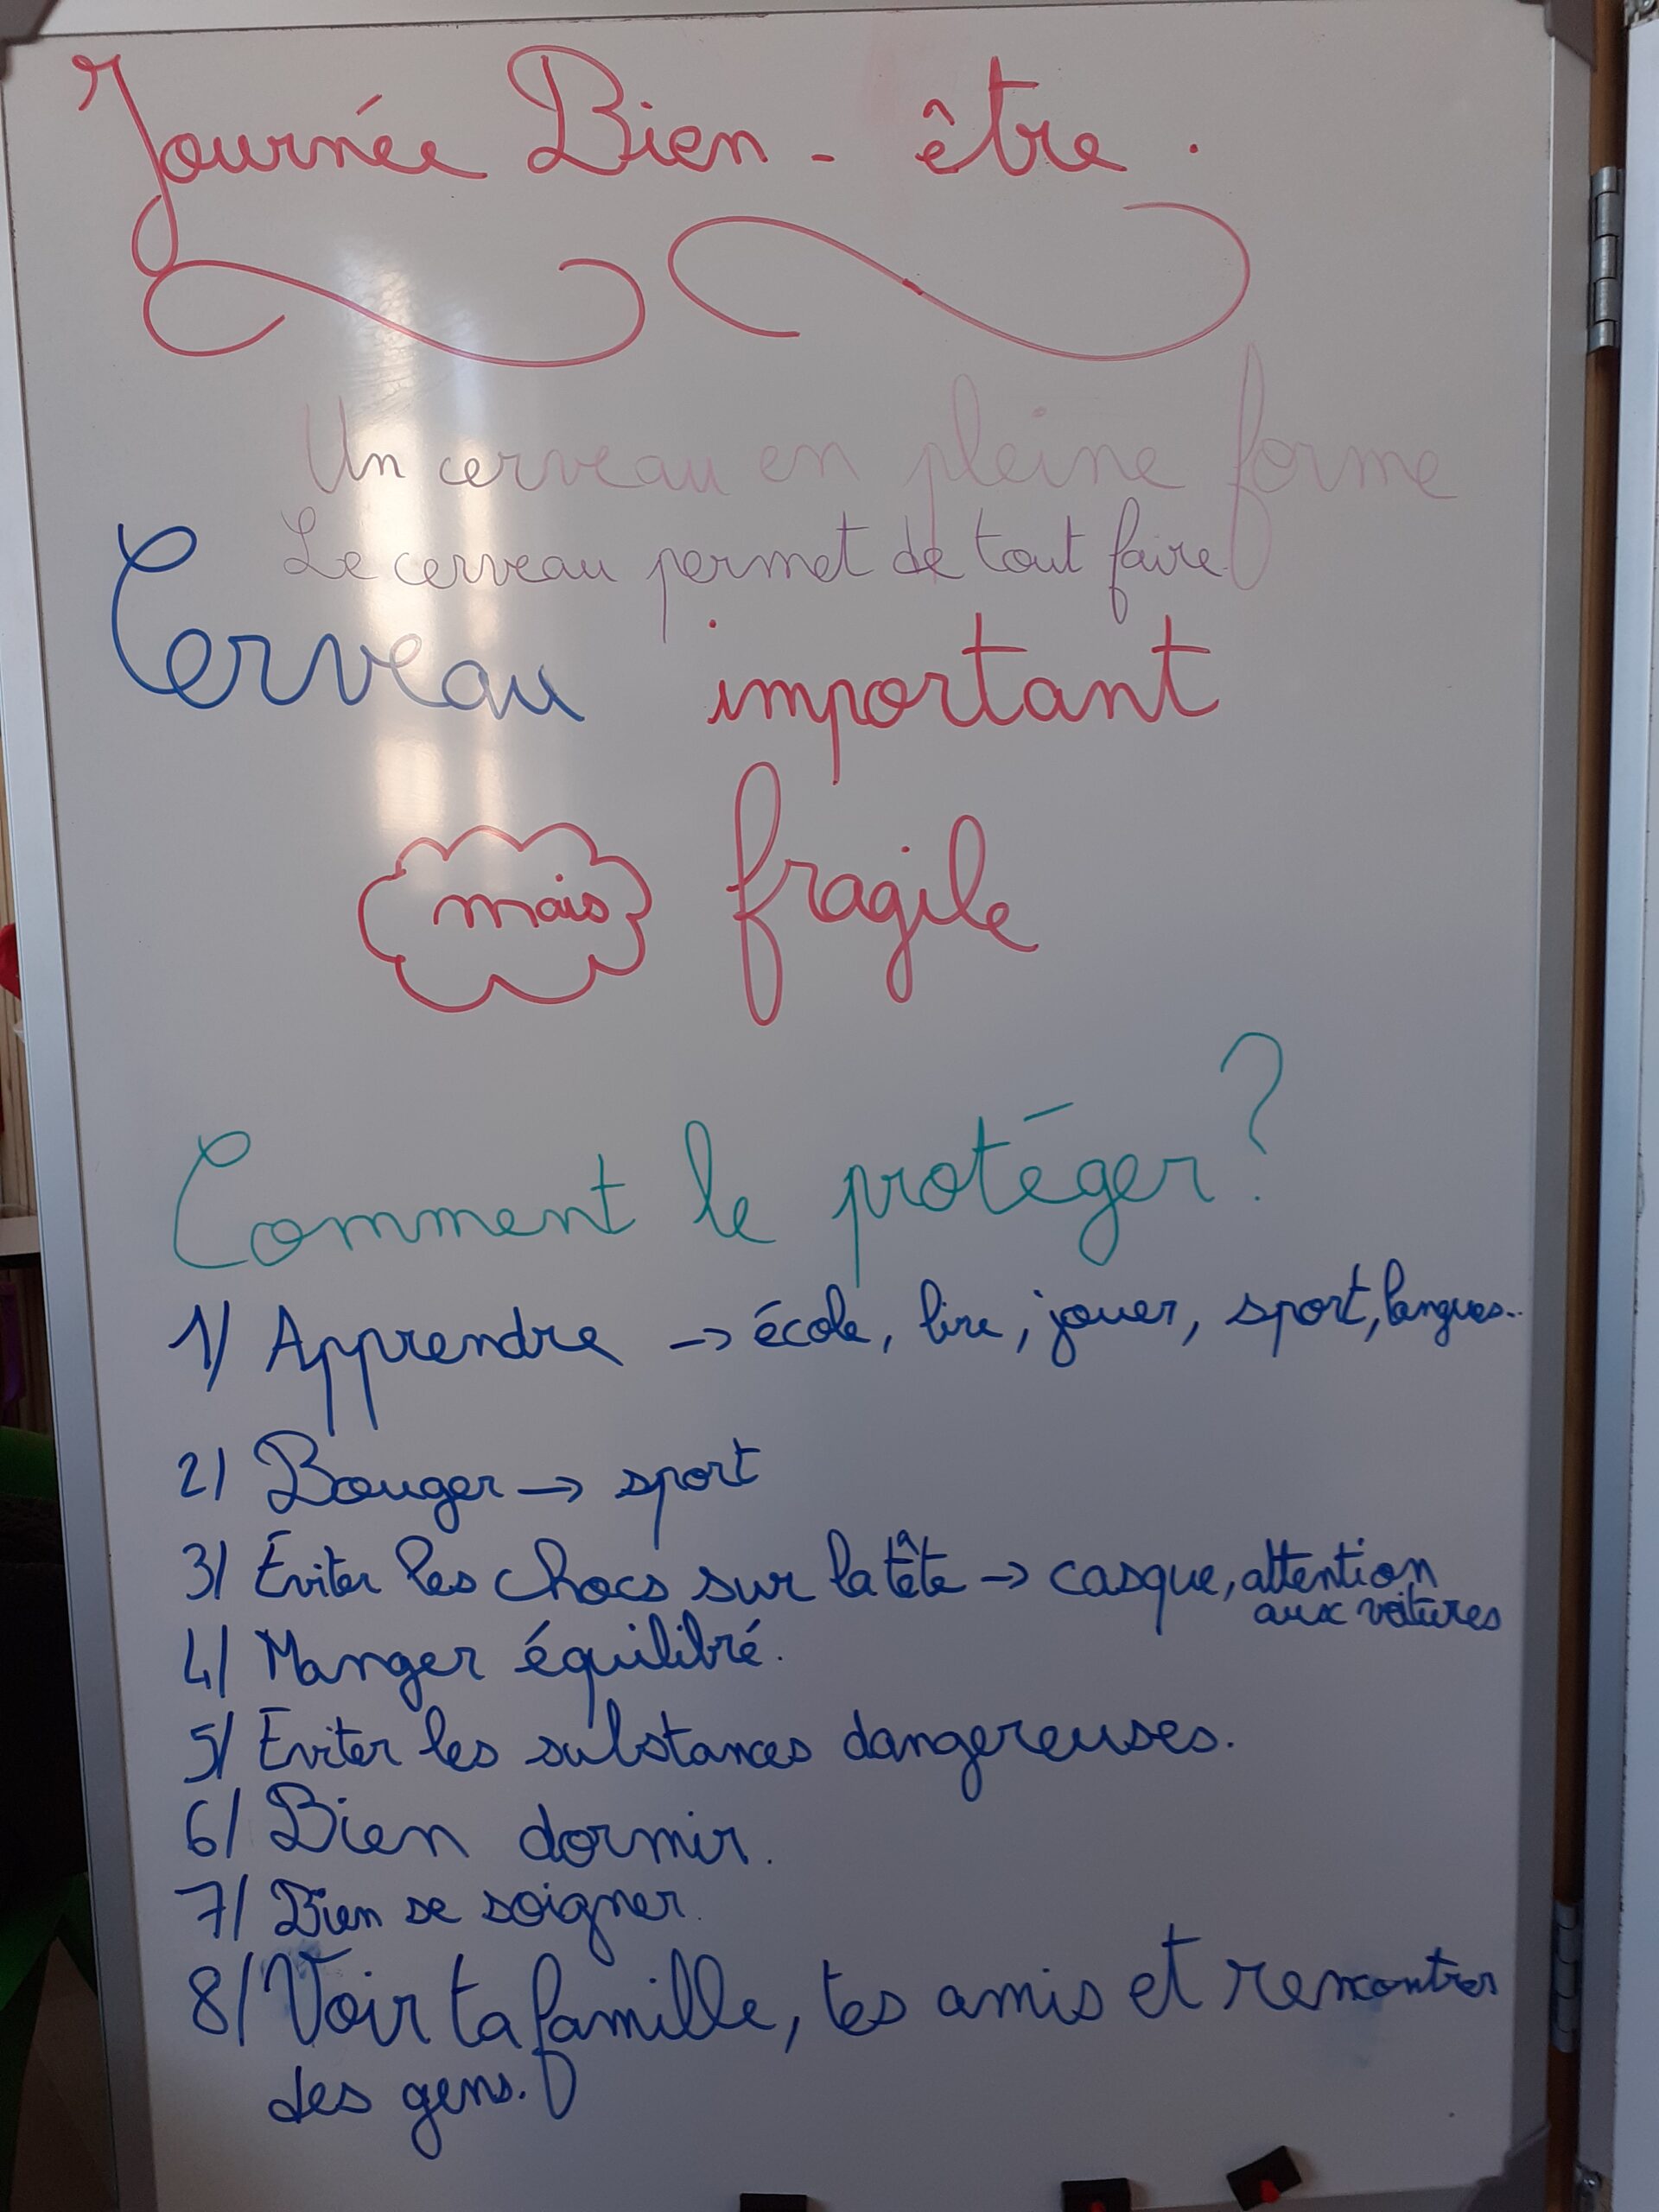 Journée Bien-être.
Un cerveau en pleine forme
Le cerveau permet de tout faire
Cerveau important
mais fragile
Comment le protéger?
1/ Apprendre -> école, lire, jouer, sport, langues...
2/ Bouger -> sport
3/ Éviter les chocs sur la tête -> casque, attention
aux voitures
4/ Manger équilibré.
5/ Eviter les substances dangereuses.
6/ Bien dormir.
7/ Bien se soigner.
8/ Voir ta famille, tes amis et rencontrer
des gens.